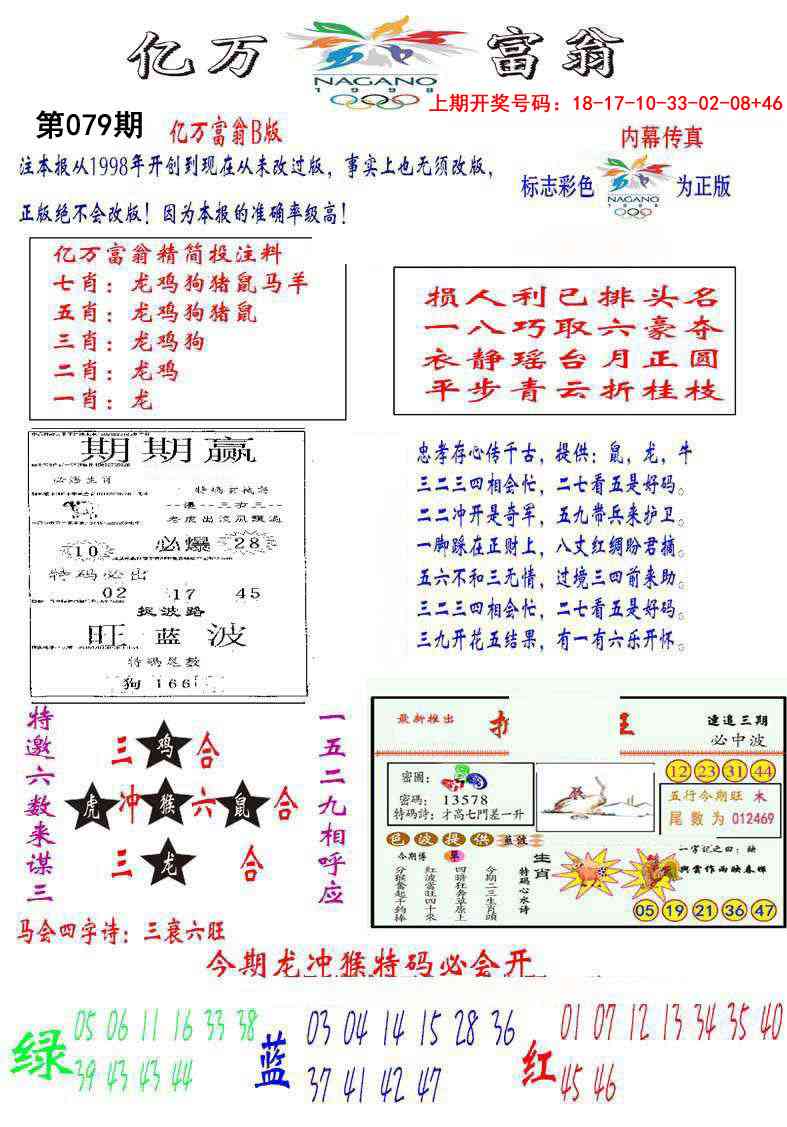 亿万 富翁
NAGANO
1998
上期开奖号码：18-17-10-33-02-08+46
第079期 亿万富翁B版
内幕传真
注本报从1998年开创到现在从未改过版，事实上也无须改版，
标志彩色 NAGANO 1998 为正版
正版绝不会改版！因为本报的准确率级高！
亿万富翁精简投注料
七肖：龙鸡狗猪鼠马羊
五肖：龙鸡狗猪鼠
三肖：龙鸡狗
二肖：龙鸡
一肖：龙
损人利己排头名
一八巧取六豪夺
衣静瑶台月正圆
平步青云折桂枝
期期赢
必爆
10
28
特码必出
02 17 45
捉波路
旺 蓝 波
特码尾数
狗 166
忠孝存心传千古，提供：鼠，龙，牛
三二三四相会忙，二七看五是好码。
二二冲开是奇军，五九带兵来护卫。
一脚踩在正财上，八丈红绸盼君摘。
五六不和三无情，过境三四前来助。
三二三四相会忙，二七看五是好码。
三九开花五结果，有一有六乐开怀。
特邀六数来谋三
三 鸡 合
虎 冲 猴 六 鼠 合
三 龙 合
一五二九相呼应
马会四字诗：三衰六旺
最新推出
速追三期
必中波
12 23 31 44
密圖：
密碼：13578
特码詩：才高七門差一升
五行今期旺 木
尾数为 012469
色波提供 蓝波
今期博
分猴奮起千钧棒
红波當旺四十米
四蹄狂奔草原上
今期二三生肖頭
特码心水诗
生肖
一字记之曰：映
興雲作雨映春暉
05 19 21 36 47
今期龙冲猴特码必会开
绿
05 06 11 16 33 38
39 43 43 44
蓝
03 04 14 15 28 36
37 41 42 47
红
01 07 12 13 34 35 40
45 46